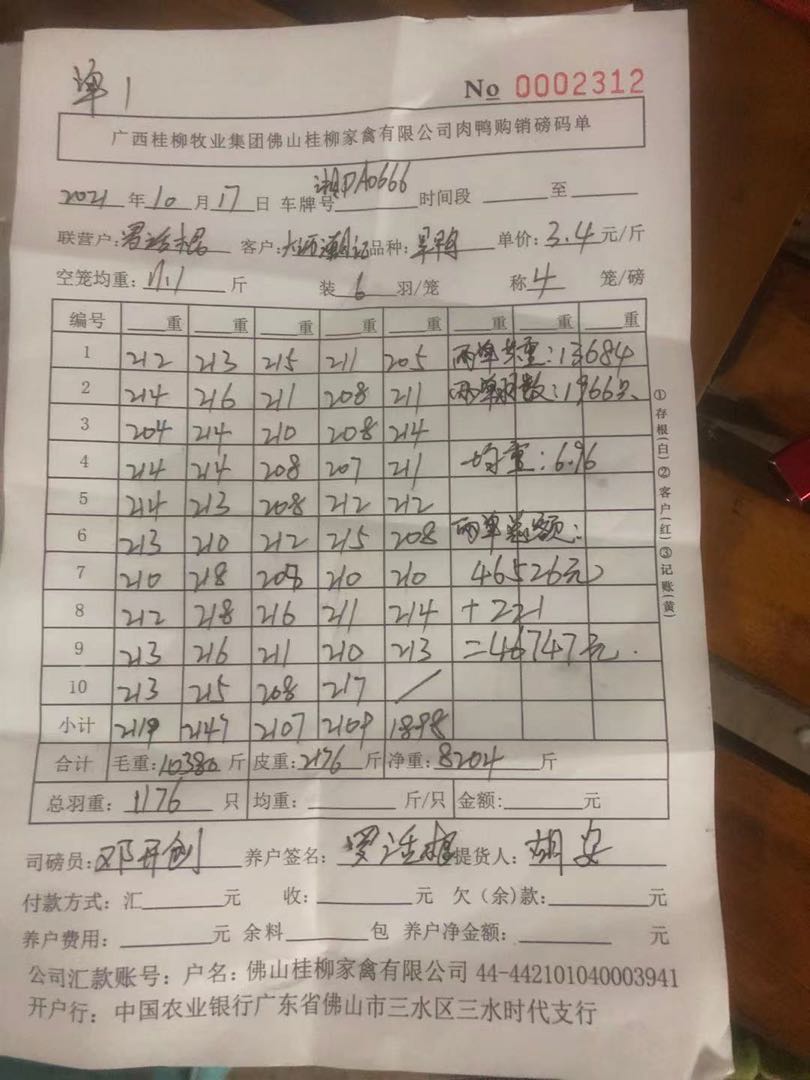 单1
No 0002312
广西桂柳牧业集团佛山桂柳家禽有限公司肉鸭购销磅码单
2021 年 10 月 17 日 车牌号 湘DA0666 时间段 至
联营户: 客户: 品种: 单价: 3.4 元/斤
空笼均重: 11.1 斤 装 6 羽/笼 称 4 笼/磅
编号 重 重 重 重 重 重 重 重
1 212 213 215 211 205 两单共重:13684
2 214 216 211 208 211 两单羽数:1966只
3 204 214 210 208 214
4 214 214 208 207 211 均重:6.96
5 214 213 208 212 212
6 213 210 212 215 208 两单总额:
7 210 218 208 210 210 46526元
8 212 218 216 211 214 +221
9 213 216 211 210 213 =46747元.
10 213 215 208 217 /
小计 2119 2147 2107 2109 1898
合计 毛重:10380 斤 皮重:2176 斤 净重:8204 斤
总羽重: 1176 只 均重: 斤/只 金额: 元
司磅员: 邓开创 养户签名: 提货人: 胡安
付款方式:汇 元 收: 元 欠(余)款: 元
养户费用: 元 余料 包 养户净金额: 元
公司汇款账号:户名:佛山桂柳家禽有限公司 44-442101040003941
开户行:中国农业银行广东省佛山市三水区三水时代支行
①存根(白)②客户(红)③记账(黄)